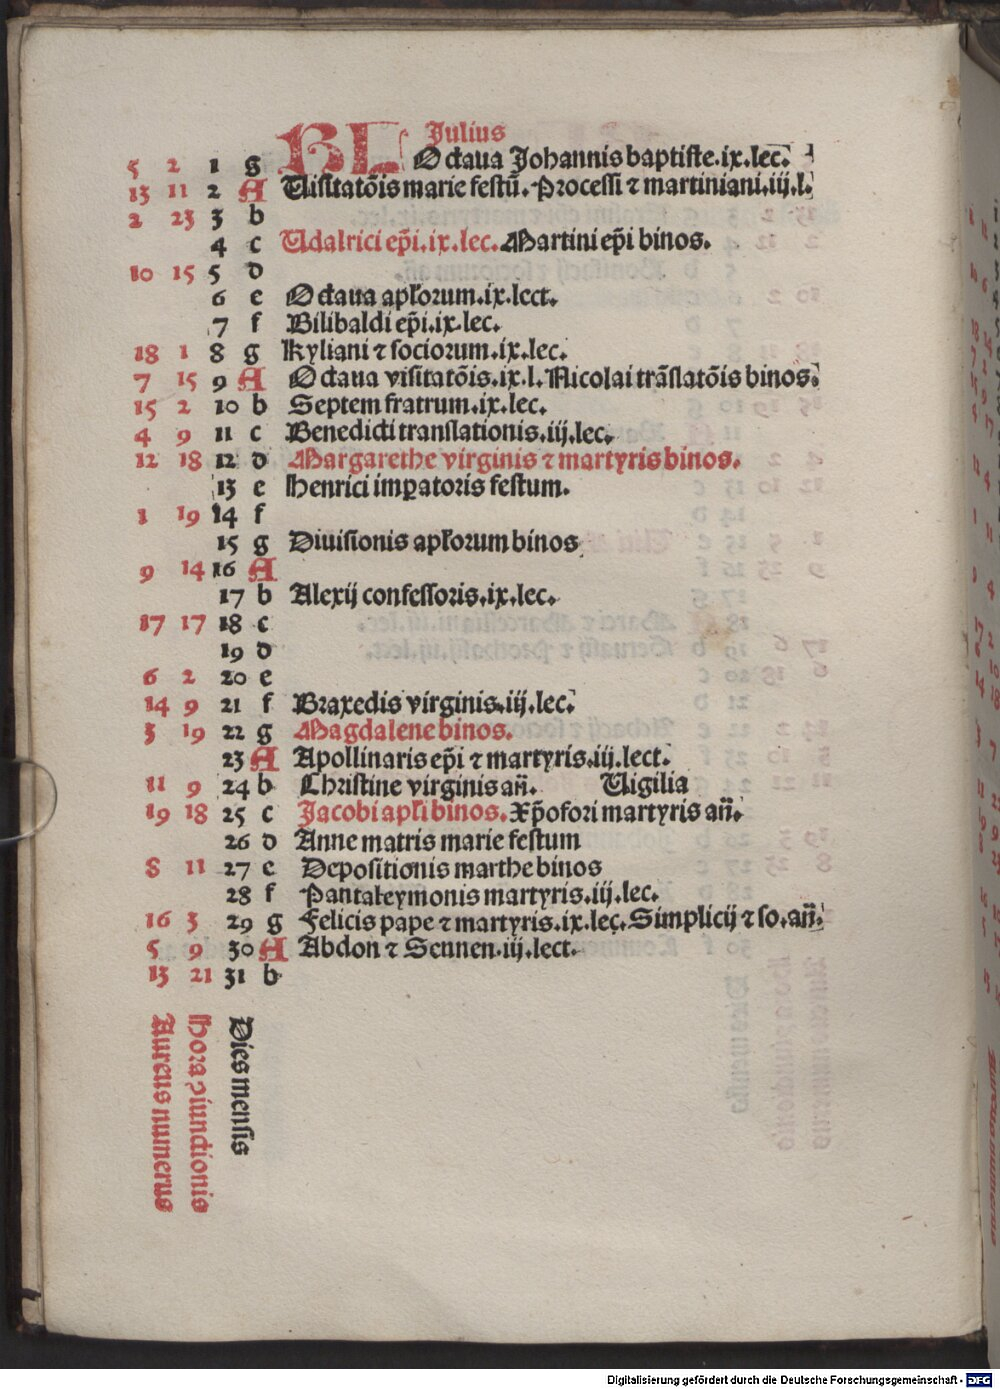 KL Julius
5 2 1 g Octaua Johannis baptiste.ix.lec.
13 11 2 A Uisitatõis marie festũ. Processi ⁊ martiniani.iij.l.
2 23 3 b
4 c Udalrici ep̃i.ix.lec. Martini ep̃i binos.
10 15 5 d
6 e Octaua apľorum.ix.lect.
7 f Bilibaldi ep̃i.ix.lec.
18 1 8 g Kyliani ⁊ sociorum.ix.lec.
7 15 9 A Octaua visitatõis.ix.l. Nicolai trãslatõis binos.
15 2 10 b Septem fratrum.ix.lec.
4 9 11 c Benedicti translationis.iij.lec.
12 18 12 d Margarethe virginis ⁊ martyris binos.
13 e Henrici imꝑatoris festum.
1 19 14 f
15 g Diuisionis apľorum binos
9 14 16 A
17 b Alexij confessoris.ix.lec.
17 17 18 c
19 d
6 2 20 e
14 9 21 f Braxedis virginis.iij.lec.
3 19 22 g Magdalene binos.
23 A Apollinaris ep̃i ⁊ martyris.iij.lect.
11 9 24 b Christine virginis añ. Uigilia
19 18 25 c Jacobi apľi binos. Xp̃ofori martyris añ.
26 d Anne matris marie festum
8 11 27 e Depositionis marthe binos
28 f Pantaleymonis martyris.iij.lec.
16 3 29 g Felicis pape ⁊ martyris.ix.lec. Simplicij ⁊ so.añ.
5 9 30 A Abdon ⁊ Sennen.iij.lect.
13 21 31 b
Aureus numerus
Hora ꝯiunctionis
Dies mensis
Digitalisierung gefördert durch die Deutsche Forschungsgemeinschaft - DFG